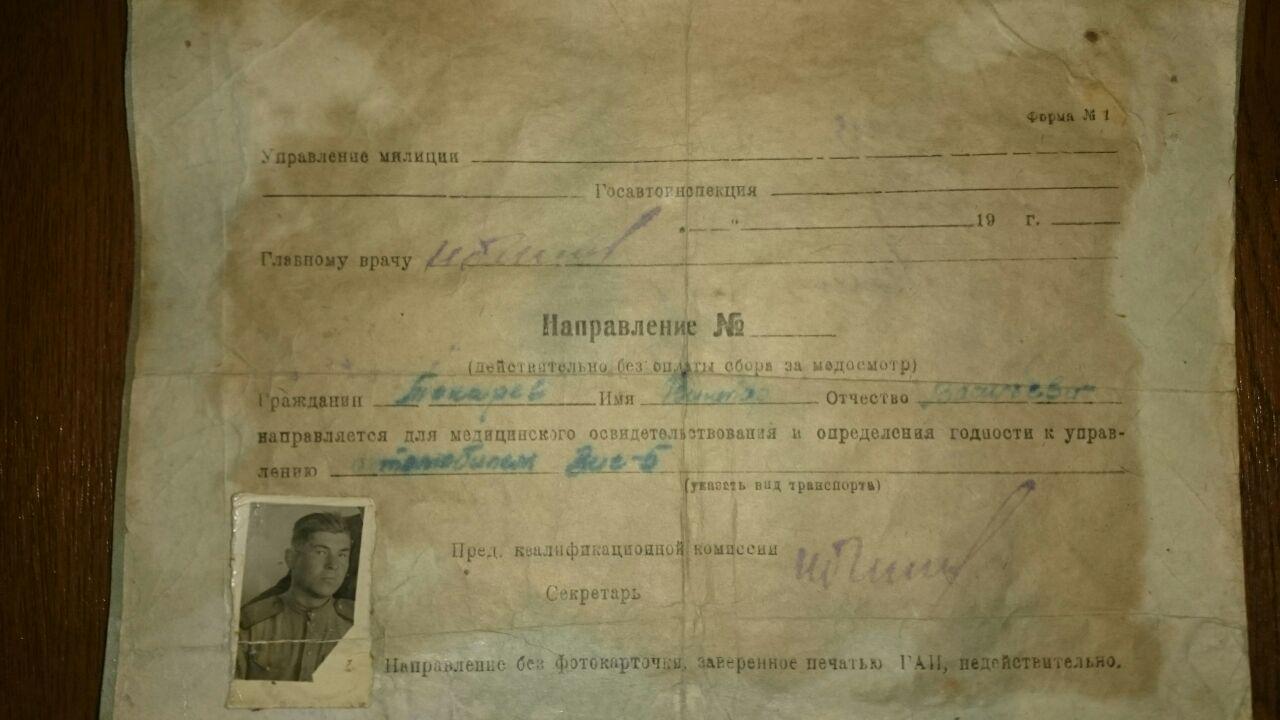 Форма № 1
Управление милиции
Госавтоинспекция
„ “ 19 г.
Главному врачу
Направление №
(действительно без оплаты сбора за медосмотр)
Гражданин Токарев Имя Отчество
направляется для медицинского освидетельствования и определения годности к управ-
лению автомобилем Зис-5
(указать вид транспорта)
Пред. квалификационной комиссии
Секретарь
Направление без фотокарточки, заверенное печатью ГАИ, недействительно.